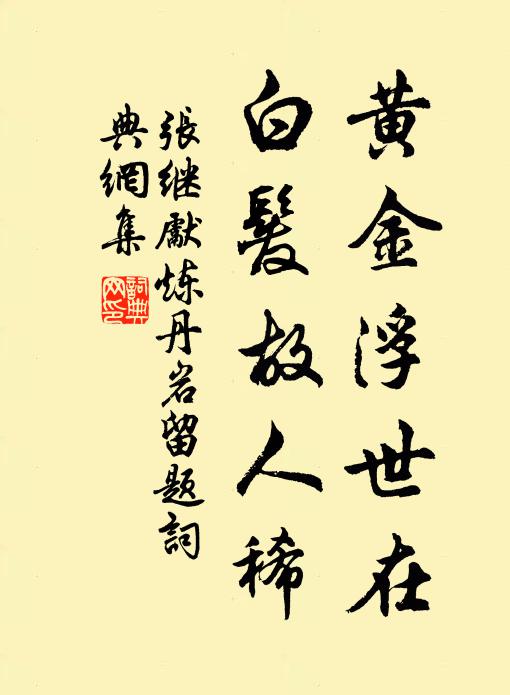 黄金浮世在
白髮故人稀
張继愿炼丹岩留题詞
典網集
詞典網印